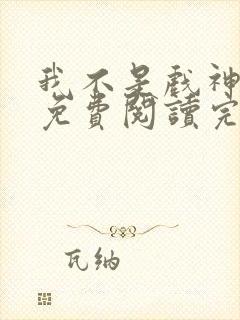 我不是戏神
免費閱讀完
瓦纳